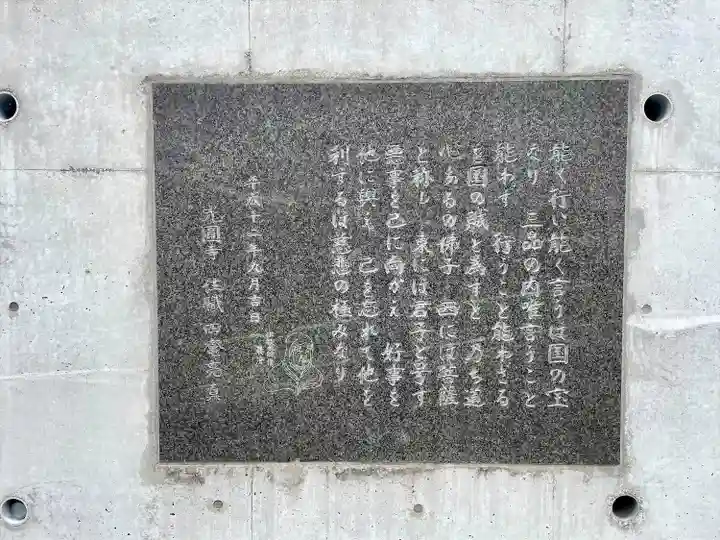 能く行い能く言うは国の宝
なり 三品の内唯言うこと
能わず 行うこと能わざる
を国の賊と為すと 乃ち道
心あるの佛子 西には菩薩
と称し 東には君子と号す
悪事を己に向かえ 好事を
他に與え 己を忘れて他を
利するは慈悲の極みなり
平成十二年九月吉日
光圓寺 住職 四衢亮真